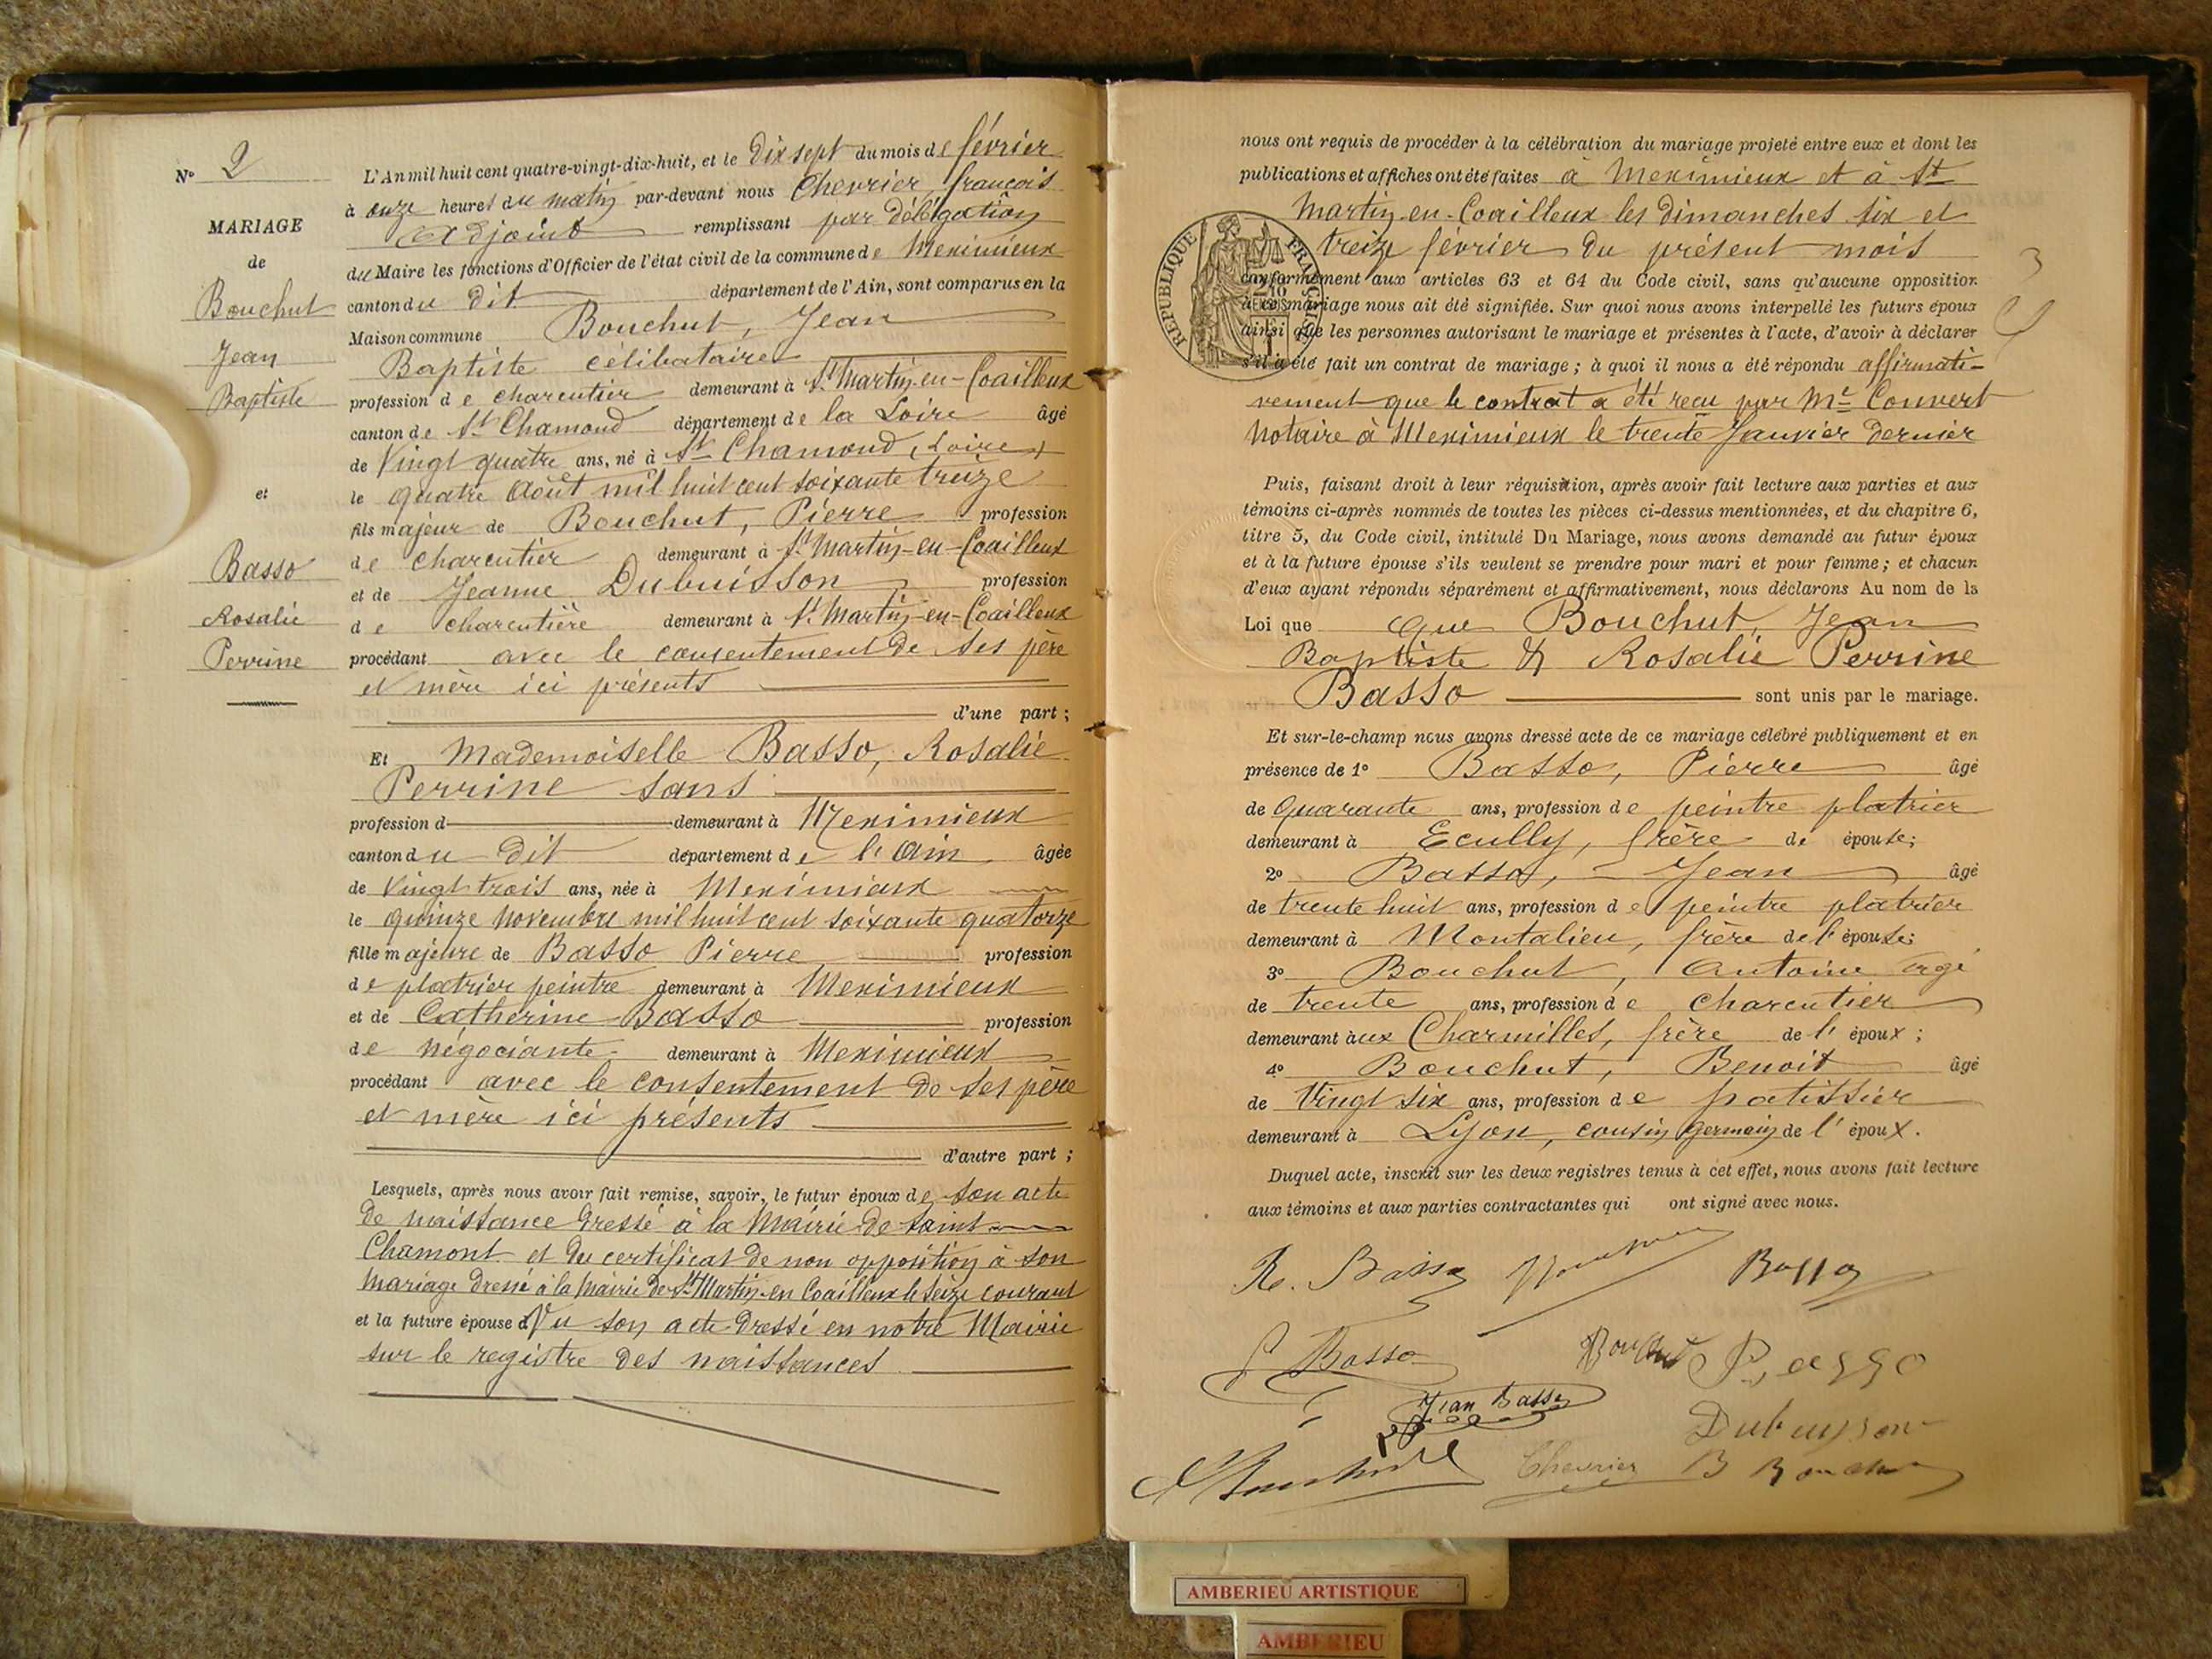 N° 2
MARIAGE
de
Bouchut
Jean
Baptiste
et
Basso
Rosalie
Perrine
L'An mil huit cent quatre-vingt-dix-huit, et le dix sept du mois de février
à onze heures du matin par-devant nous Chevrier, françois
adjoint remplissant par délégation
du Maire les fonctions d'Officier de l'état civil de la commune de Meximieux
canton du dit département de l'Ain, sont comparus en la
Maison commune Bouchut, Jean
Baptiste célibataire
profession de charcutier demeurant à St Martin-en-Coailleux
canton de St Chamond département de la Loire âgé
de Vingt quatre ans, né à St Chamond (Loire)
le quatre Août mil huit cent soixante treize
fils majeur de Bouchut, Pierre profession
de charcutier demeurant à St Martin-en-Coailleux
et de Jeanne Dubuisson profession
de charcutière demeurant à St Martin-en-Coailleux
procédant avec le consentement de ses père
et mère ici présents
d'une part ;
Et Mademoiselle Basso, Rosalie
Perrine sans
profession d demeurant à Meximieux
canton du dit département de l'Ain âgée
de Vingt trois ans, née à Meximieux
le quinze Novembre mil huit cent soixante quatorze
fille majeure de Basso Pierre profession
de platrier peintre demeurant à Meximieux
et de Catherine Basso profession
de négociante demeurant à Meximieux
procédant avec le consentement de ses père
et mère ici présents
d'autre part ;
Lesquels, après nous avoir fait remise, savoir, le futur époux de son acte
de naissance dressé à la Mairie de Saint
Chamont et du certificat de non opposition à son
mariage dressé à la Mairie de St Martin-en Coailleux le seize courant
et la future épouse d Vu son acte dressé en notre Mairie
sur le registre des naissances
nous ont requis de procéder à la célébration du mariage projeté entre eux et dont les
publications et affiches ont été faites à Meximieux et à St
Martin-en-Coailleux les dimanches six et
treize février du présent mois
REPUBLIQUE FRANC
conformément aux articles 63 et 64 du Code civil, sans qu'aucune opposition
à ce mariage nous ait été signifiée. Sur quoi nous avons interpellé les futurs époux
ainsi que les personnes autorisant le mariage et présentes à l'acte, d'avoir à déclarer
s'il a été fait un contrat de mariage ; à quoi il nous a été répondu affirmati-
vement que le contrat a été reçu par Me Convert
Notaire à Meximieux le trente Janvier dernier
Puis, faisant droit à leur réquisition, après avoir fait lecture aux parties et aux
témoins ci-après nommés de toutes les pièces ci-dessus mentionnées, et du chapitre 6,
titre 5, du Code civil, intitulé Du Mariage, nous avons demandé au futur époux
et à la future épouse s'ils veulent se prendre pour mari et pour femme ; et chacun
d'eux ayant répondu séparément et affirmativement, nous déclarons Au nom de la
Loi que que Bouchut, Jean
Baptiste & Rosalie Perrine
Basso sont unis par le mariage.
Et sur-le-champ nous avons dressé acte de ce mariage célébré publiquement et en
présence de 1° Basso, Pierre âgé
de Quarante ans, profession de peintre platrier
demeurant à Ecully, frère de épouse;
2° Basso, Jean âgé
de trente huit ans, profession de peintre platrier
demeurant à Montalieu, frère de l'épouse;
3° Bouchut, Antoine âgé
de trente ans, profession de charcutier
demeurant aux Charmilles, frère de l'époux ;
4° Bouchut, Benoit âgé
de Vingt six ans, profession de patissier
demeurant à Lyon, cousin germain de l'époux.
Duquel acte, inscrit sur les deux registres tenus à cet effet, nous avons fait lecture
aux témoins et aux parties contractantes qui ont signé avec nous.
R. Basso Basso
P Basso
Jean Basso
Dubuisson
Chevrier B Bouchut
AMBERIEU ARTISTIQUE
AMBERIEU